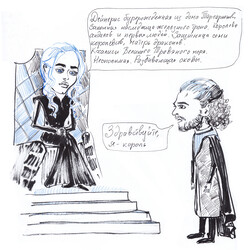 Дейнерис Бурерожденная из дома Таргариен,
законная наследница железного трона, королева
андалов и первых людей. Защитница семи
королевств, Матерь драконов,
Кхалиси Великого Травяного моря,
Неопалимая, Разбивающая оковы.
Здравствуйте,
я - король